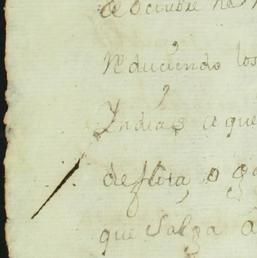 Reduciendo los
Indias a que
de flota, o
que Salga a